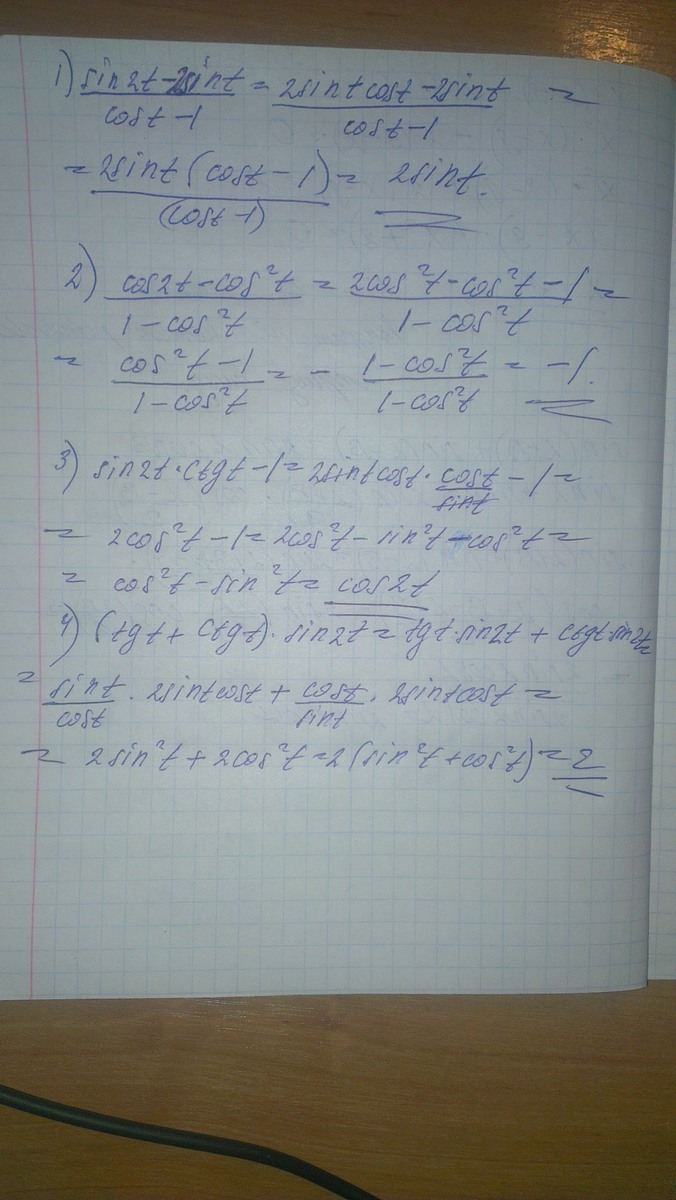 1) (sin2t-2sint)/(cost-1) = (2sintcost-2sint)/(cost-1) =
= (2sint(cost-1))/((cost-1)) = 2sint.
2) (cos2t-cos²t)/(1-cos²t) = (2cos²t-cos²t-1)/(1-cos²t) =
= (cos²t-1)/(1-cos²t) = - (1-cos²t)/(1-cos²t) = -1.
3) sin2t·ctgt-1=2sintcost·cost/sint-1=
= 2cos²t-1=2cos²t-sin²t-cos²t=
= cos²t-sin²t=cos2t
4) (tgt+ctgt)·sin2t=tgt·sin2t+ctgt·sin2t=
= sint/cost·2sintcost+cost/sint·2sintcost=
= 2sin²t+2cos²t=2(sin²t+cos²t)=2